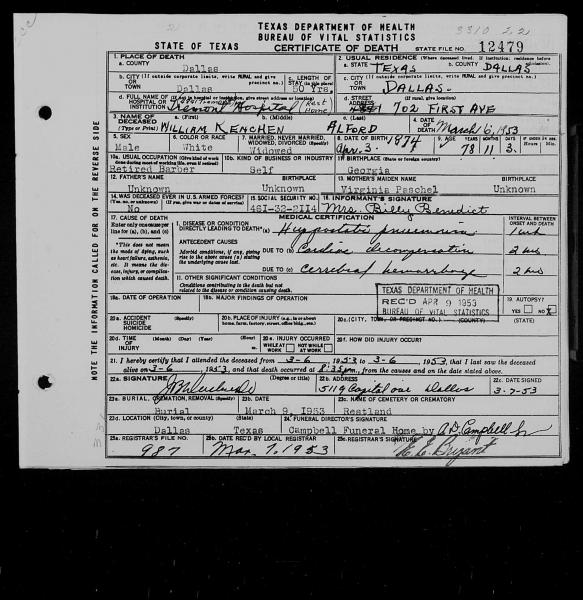 TEXAS DEPARTMENT OF HEALTH
BUREAU OF VITAL STATISTICS
STATE OF TEXAS
CERTIFICATE OF DEATH
STATE FILE NO. 12479
1. PLACE OF DEATH
a. COUNTY
Dallas
2. USUAL RESIDENCE (Where deceased lived. If institution: residence before admission).
a. STATE TEXAS b. COUNTY DALLAS
b. CITY (If outside corporate limits, write RURAL and give precinct no.)
OR TOWN Dallas
c. LENGTH OF STAY
50 Yrs.
c. CITY (If outside corporate limits, write RURAL and give precinct no.)
OR TOWN DALLAS.
d. FULL NAME OF (If not in hospital or institution, give street address or location)
HOSPITAL OR INSTITUTION Tremont Hospital (Rest Home)
d. STREET ADDRESS (If rural, give location)
702 FIRST AVE
3. NAME OF DECEASED (Type or Print)
a. (First) WILLIAM b. (Middle) KENCHEN c. (Last) ALFORD
4. DATE OF DEATH March 6, 1953
5. SEX
Male
6. COLOR OR RACE
White
7. MARRIED, NEVER MARRIED, WIDOWED, DIVORCED (Specify)
Widowed
8. DATE OF BIRTH
Apr. 3. 1874
78 11 3.
10a. USUAL OCCUPATION (Give kind of work done during most of working life, even if retired)
Retired Barber
10b. KIND OF BUSINESS OR INDUSTRY
Self
11. BIRTHPLACE (State or foreign country)
Georgia
12. FATHER'S NAME BIRTHPLACE
Unknown Unknown
13. MOTHER'S MAIDEN NAME BIRTHPLACE
Virginia Paschel Unknown
14. WAS DECEASED EVER IN U.S. ARMED FORCES?
No
15. SOCIAL SECURITY NO.
461-32-2114
16. INFORMANT'S SIGNATURE
Mrs. Billy Benedict
17. CAUSE OF DEATH
Enter only one cause per line for (a), (b), and (c)
MEDICAL CERTIFICATION
INTERVAL BETWEEN ONSET AND DEATH
I. DISEASE OR CONDITION DIRECTLY LEADING TO DEATH* (a) Hypostatic pneumonia 1 wk
*This does not mean the mode of dying, such as heart failure, asthenia, etc. It means the disease, injury, or complication which caused death.
ANTECEDENT CAUSES
Morbid conditions, if any, giving rise to the above cause (a) stating the underlying cause last.
DUE TO (b) Cardiac decompensation 2 wks
DUE TO (c) Cerrebral hemorrhage 2 wks
II. OTHER SIGNIFICANT CONDITIONS
Conditions contributing to the death but not related to the disease or condition causing death.
18a. DATE OF OPERATION
18b. MAJOR FINDINGS OF OPERATION
TEXAS DEPARTMENT OF HEALTH
REC'D APR 9 1953
BUREAU OF VITAL STATISTICS
19. AUTOPSY?
YES NO X
20a. ACCIDENT SUICIDE HOMICIDE (Specify)
20b. PLACE OF INJURY (e.g., in or about home, farm, factory, street, office bldg., etc.)
20c. (CITY, TOWN, OR PRECINCT NO.) (COUNTY) (STATE)
20d. TIME OF INJURY
20e. INJURY OCCURRED
WHILE AT WORK NOT WHILE AT WORK
20f. HOW DID INJURY OCCUR?
21. I hereby certify that I attended the deceased from 3-6, 1953 to 3-6, 1953, that I last saw the deceased
alive on 3-6, 1953, and that death occurred at 8:35 pm., from the causes and on the date stated above.
22a. SIGNATURE (Degree or title)
22b. ADDRESS
5119 Capitol ave Dallas
22c. DATE SIGNED
3-7-53
23a. BURIAL, CREMATION, REMOVAL (Specify)
Burial
23b. DATE
March 9, 1953
23c. NAME OF CEMETERY OR CREMATORY
Restland
23d. LOCATION (City, town, or county) (State)
Dallas Texas
24. FUNERAL DIRECTOR'S SIGNATURE
Campbell Funeral Home by A.D. Campbell Jr
25a. REGISTRAR'S FILE NO.
987
25b. DATE REC'D BY LOCAL REGISTRAR
Mar. 7, 1953
25c. REGISTRAR'S SIGNATURE
E. Bryant
NOTE THE INFORMATION CALLED FOR ON THE REVERSE SIDE